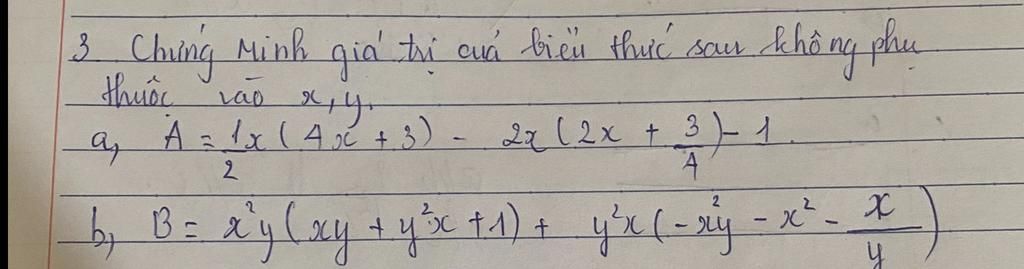 3 Chứng Minh giá trị cuả biểu thức sau không phụ
thuộc vào x, y.
a, A = \frac{1}{2}x(4x + 3) - 2x(2x + \frac{3}{4}) - 1.
b, B = x²y(xy + y²x + 1) + y²x(-x²y - x² - \frac{x}{y})